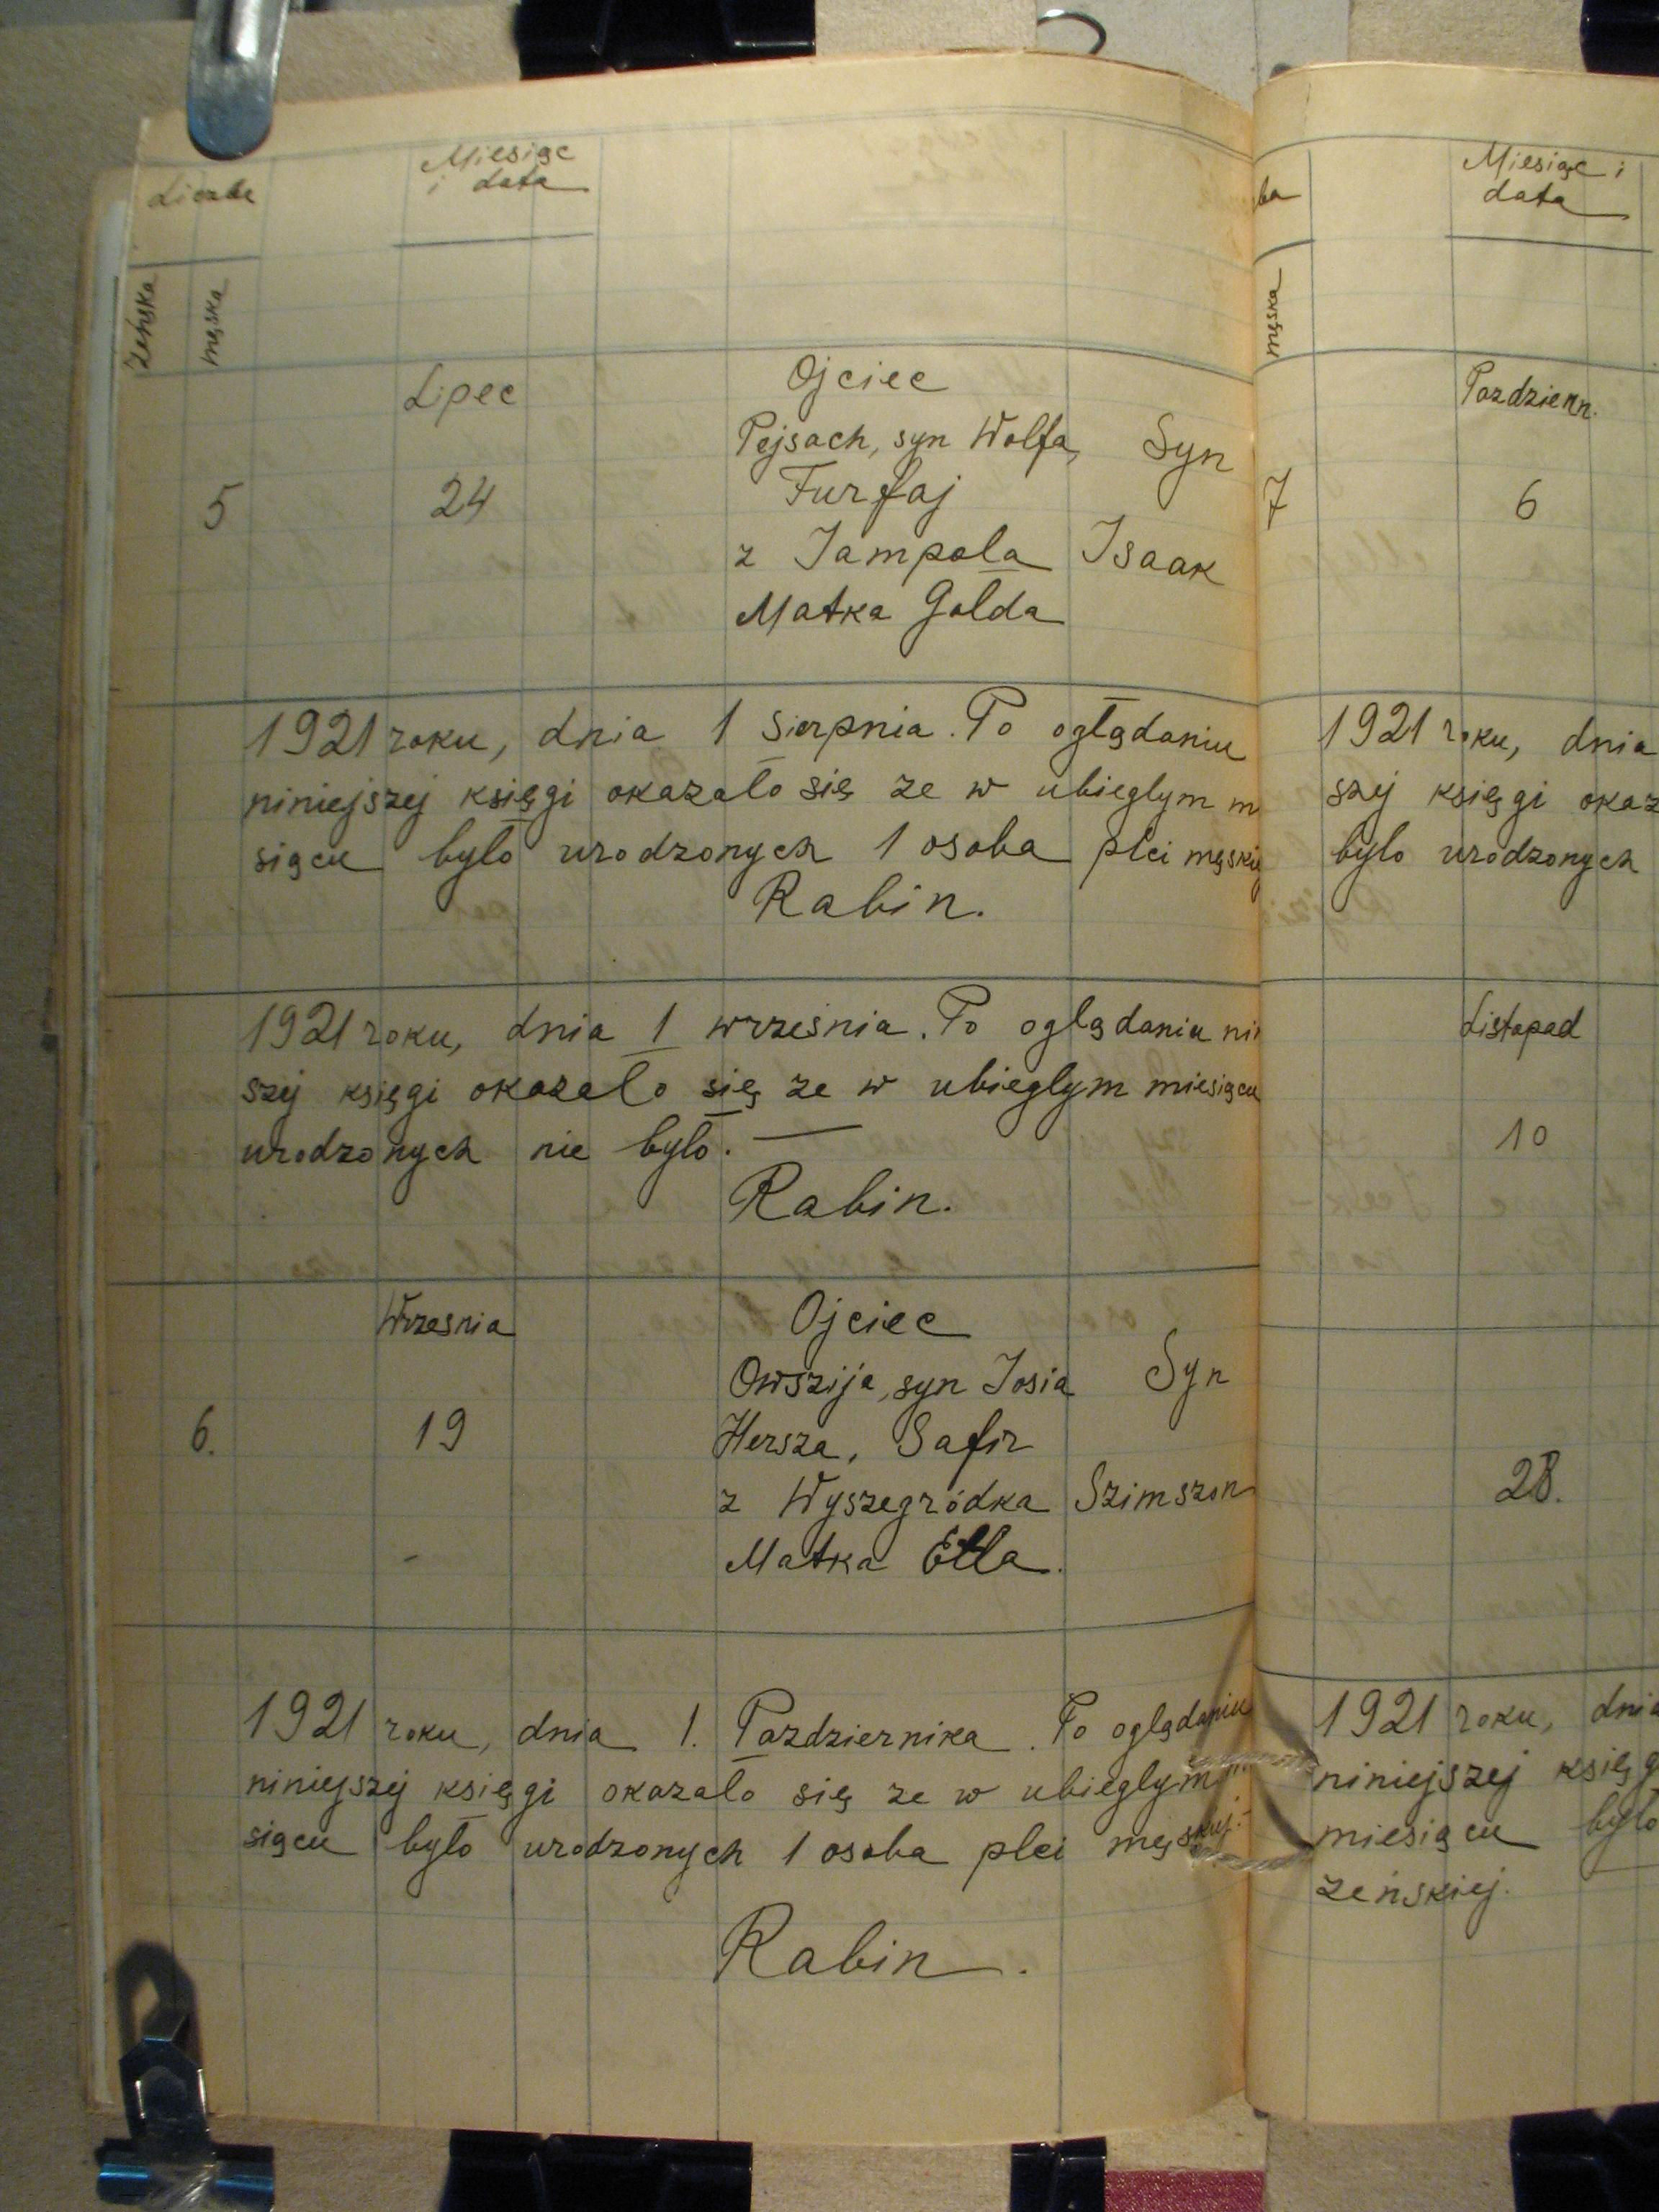 Liczba
Miesiąc
i data
Żeńska
męska
Lipec
Ojciec
Pejsach, syn Wolfa,
Syn
5
24
Furfaj
z Jampola
Isaak
Matka Golda
1921 roku, dnia 1 Sierpnia. Po oglądaniu
niniejszej księgi okazało się ze w ubieglym m
siącu było urodzonych 1 osoba plci męskiej
Rabin.
1921 roku, dnia 1 wrzesnia. Po oglądaniu nii
szej księgi okazalo się ze w ubieglym miesiącu
urodzonych nie było.
Rabin.
Wrzesnia
Ojciec
Owszija, syn Josia
Syn
6.
19
Hersza, Safir
z Wyszegródka
Szimszon
Matka Etla.
1921 roku, dnia 1. Pazdziernika. Po oglądaniu
niniejszej księgi okazalo się ze w ubieglym
siącu było urodzonych 1 osoba plci męskiej.
Rabin.
ba
Miesiąc i
data
męska
Pazdziern.
7
6
1921 roku, dnia
szej księgi okaz
bylo urodzonych
Listopad
10
28.
1921 roku, dnia
niniejszej księg
miesiącu było
żeńskiej.